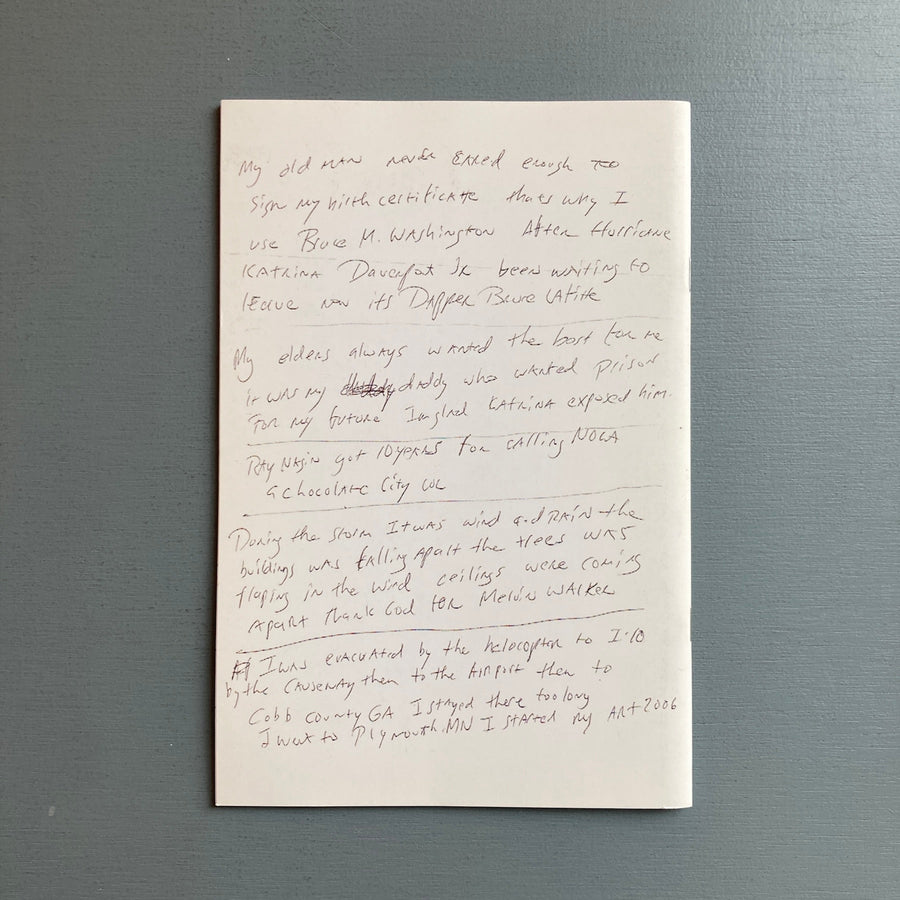 My old MAN never CAREd enough TO
Sign my birth certificAtte thats why I
use Bruce M. WAShington After Hurricane
KATRINA Davenpot JR been waiting to
leave now its DApper Bruce LAfitte
My elders always wANted the best for me
it was my daddy who wANted prison
For my future Im glad KATRINA exposed him.
RAy NAgin got 10 yeARS for cAlling NOLA
a chocolate City LOL
During the storm It was wind and RAIN the
buildings was fAlling apart the trees was
flaping in the wind ceilings were coming
apart thank God for Melvin WALKER
I was evacuated by the helocopter to I-10
by the CAUSEWAY then to the AIRport then to
Cobb county GA I stayed there too long
I went to Plymouth.MN I started my ART 2006